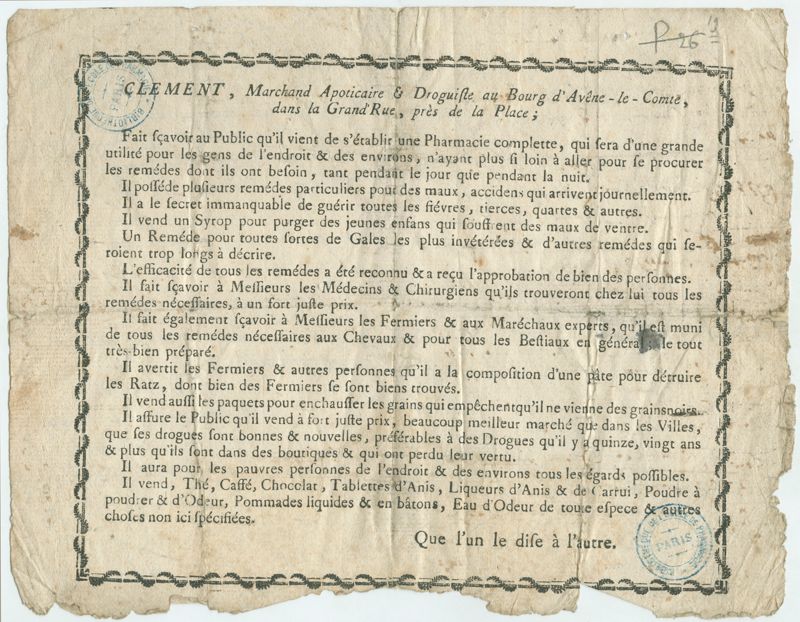 P 26
CLEMENT, Marchand Apoticaire & Droguiste au Bourg d'Avêne-le-Comte,
dans la Grand'Rue, près de la Place;
Fait sçavoir au Public qu'il vient de s'établir une Pharmacie complette, qui sera d'une grande
utilité pour les gens de l'endroit & des environs, n'ayant plus si loin à aller pour se procurer
les remédes dont ils ont besoin, tant pendant le jour que pendant la nuit.
Il posséde plusieurs remédes particuliers pour des maux, accidens qui arrivent journellement.
Il a le secret immanquable de guérir toutes les fiévres, tierces, quartes & autres.
Il vend un Syrop pour purger des jeunes enfans qui souffrent des maux de ventre.
Un Reméde pour toutes sortes de Gales les plus invétérées & d'autres remédes qui se-
roient trop longs à décrire.
L'efficacité de tous les remédes a été reconnu & a reçu l'approbation de bien des personnes.
Il fait sçavoir à Messieurs les Médecins & Chirurgiens qu'ils trouveront chez lui tous les
remédes nécessaires, à un fort juste prix.
Il fait également sçavoir à Messieurs les Fermiers & aux Maréchaux experts, qu'il est muni
de tous les remédes nécessaires aux Chevaux & pour tous les Bestiaux en général le tout
très-bien préparé.
Il avertit les Fermiers & autres personnes qu'il a la composition d'une pâte pour détruire
les Ratz, dont bien des Fermiers se sont biens trouvés.
Il vend aussi les paquets pour enchausser les grains qui empêchent qu'il ne vienne des grains noirs.
Il assure le Public qu'il vend à fort juste prix, beaucoup meilleur marché que dans les Villes,
que ses drogues sont bonnes & nouvelles, préférables à des Drogues qu'il y a quinze, vingt ans
& plus qu'ils sont dans des boutiques & qui ont perdu leur vertu.
Il aura pour les pauvres personnes de l'endroit & des environs tous les égards possibles.
Il vend, Thé, Caffé, Chocolat, Tablettes d'Anis, Liqueurs d'Anis & de Cartui, Poudre à
poudrer & d'Odeur, Pommades liquides & en bâtons, Eau d'Odeur de toute espece & autres
choses non ici spécifiées.
Que l'un le dise à l'autre.
PARIS